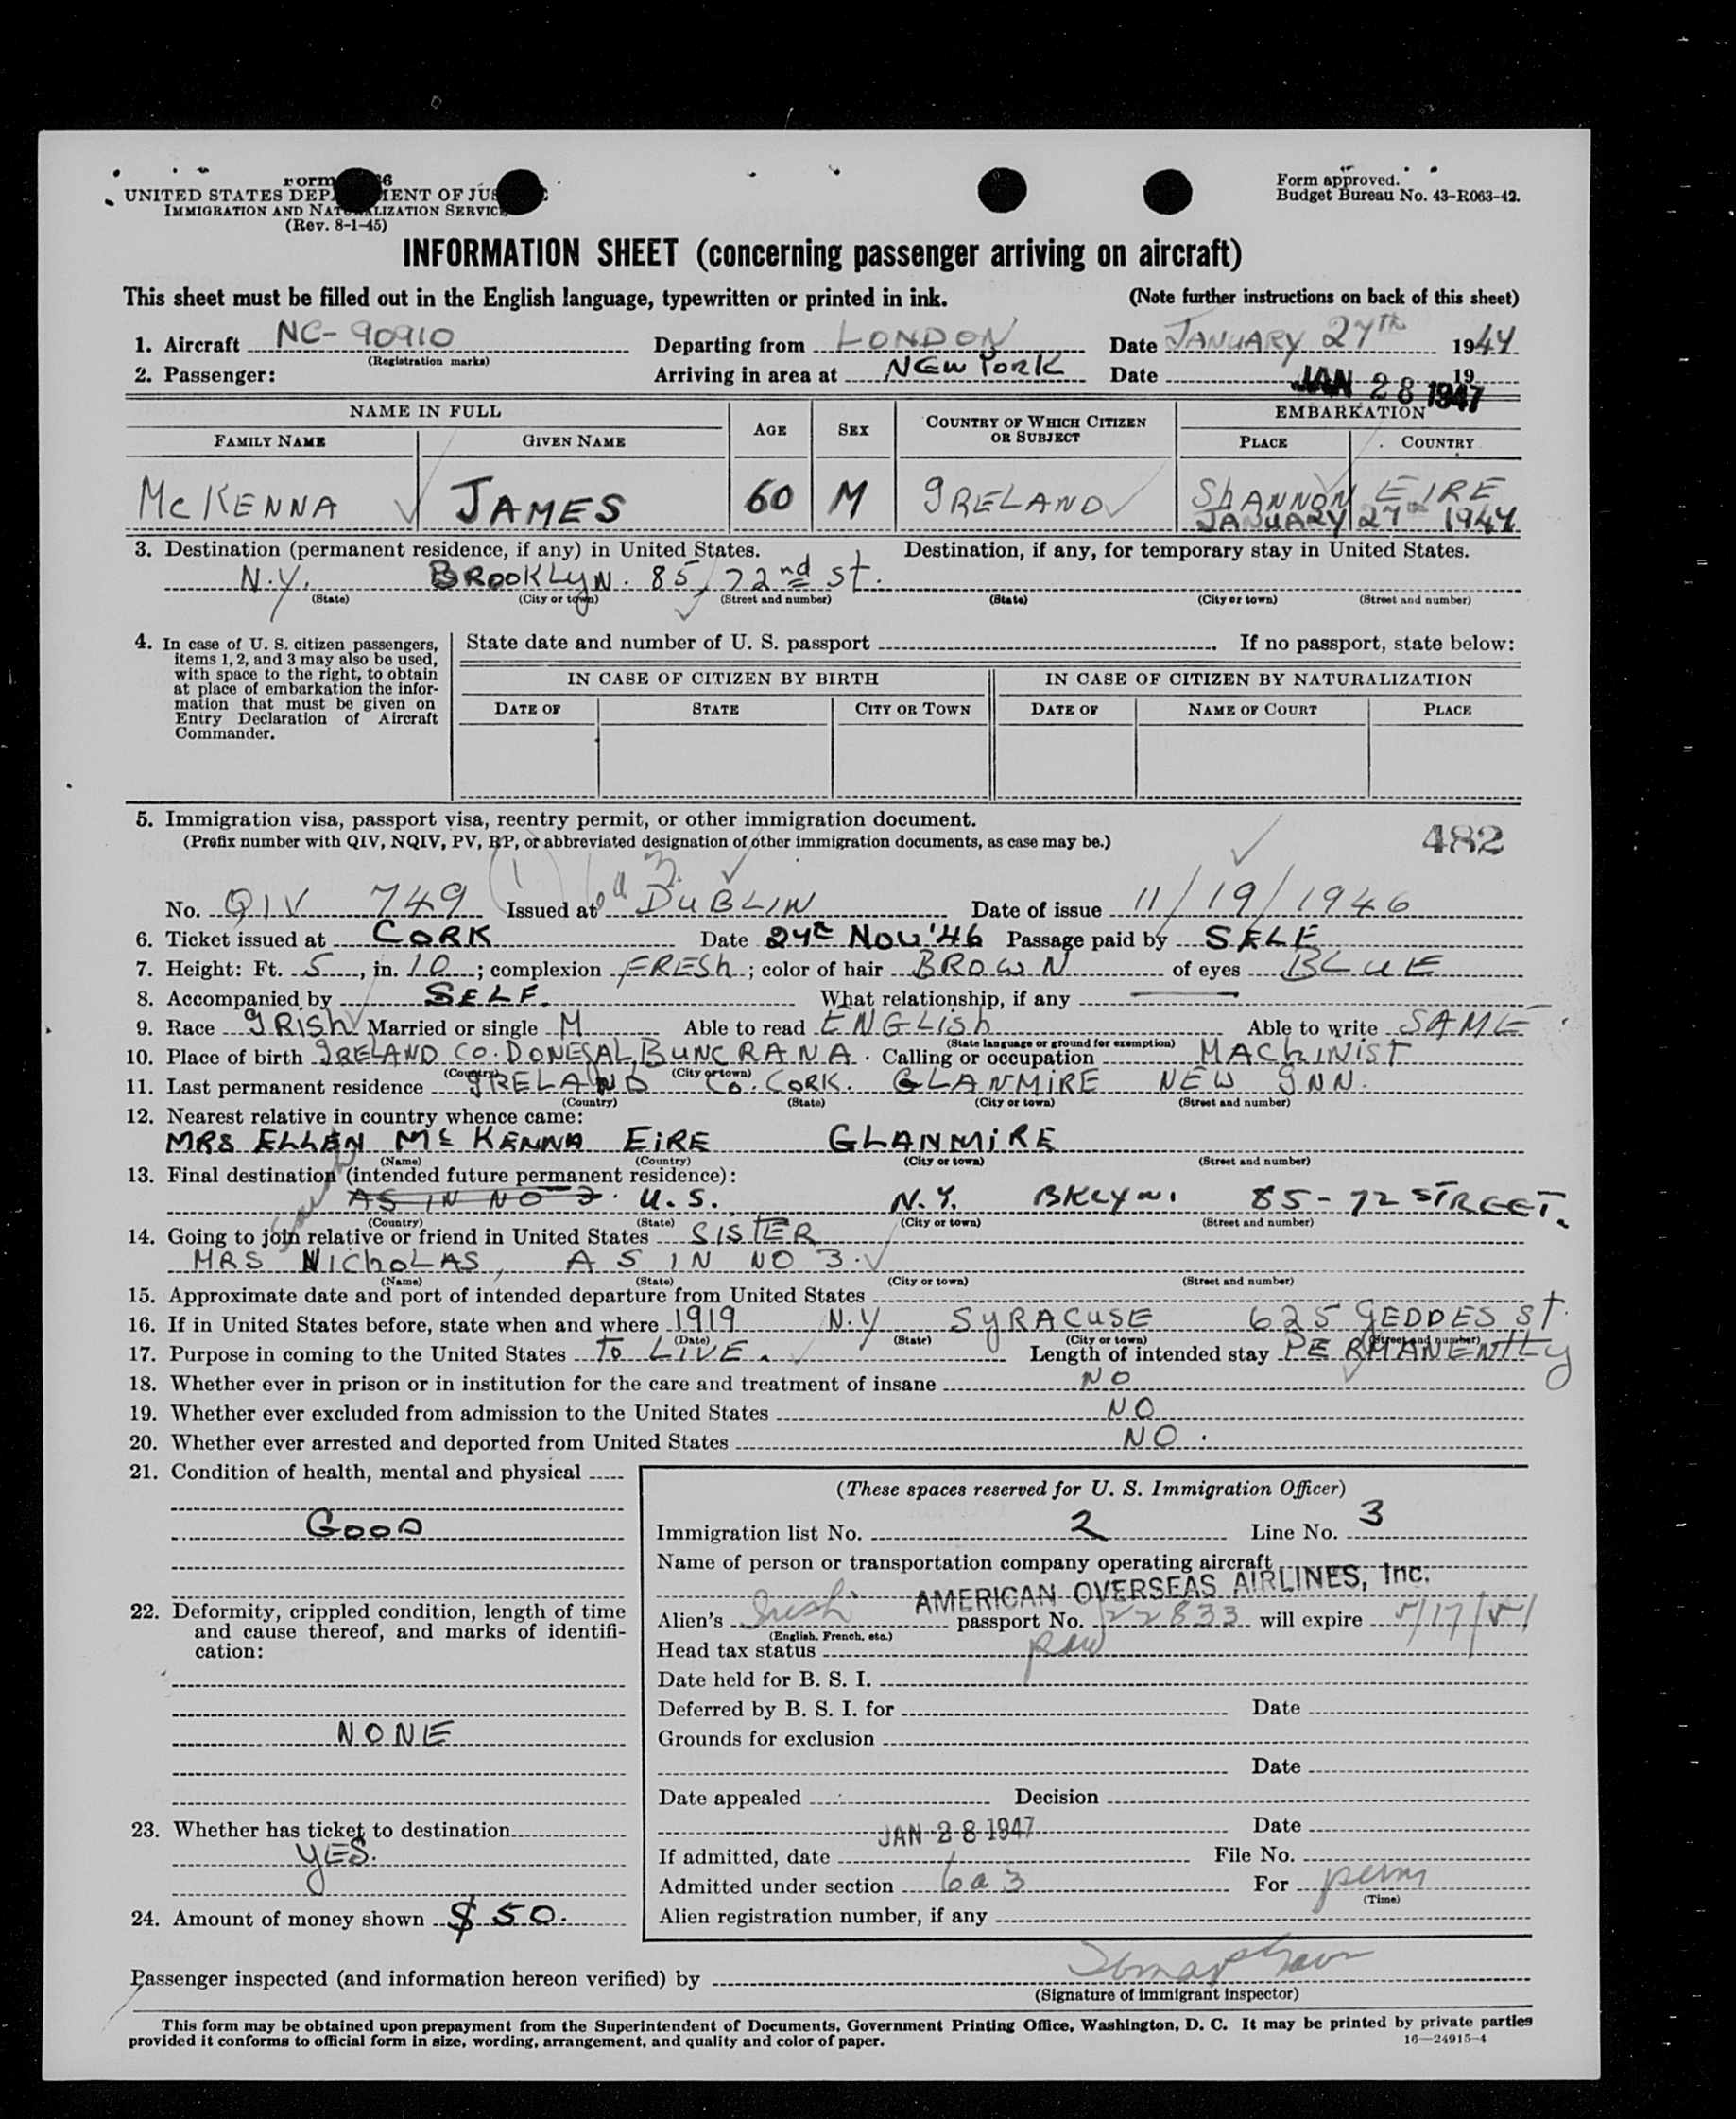 UNITED STATES DEPARTMENT OF JUSTICE
IMMIGRATION AND NATURALIZATION SERVICE
(Rev. 8-1-45)
Form approved.
Budget Bureau No. 43-R063-42.
INFORMATION SHEET (concerning passenger arriving on aircraft)
This sheet must be filled out in the English language, typewritten or printed in ink. (Note further instructions on back of this sheet)
1. Aircraft NC-90910 Departing from LONDON Date JANUARY 27th 1947
(Registration marks)
2. Passenger: Arriving in area at NEW YORK Date JAN 28 1947 19
NAME IN FULL AGE SEX COUNTRY OF WHICH CITIZEN OR SUBJECT EMBARKATION
FAMILY NAME GIVEN NAME PLACE COUNTRY
McKENNA JAMES 60 M IRELAND ShANNON EIRE
JANUARY 27th 1947
3. Destination (permanent residence, if any) in United States. Destination, if any, for temporary stay in United States.
N.Y. BROOKLyN. 85, 72nd St.
(State) (City or town) (Street and number) (State) (City or town) (Street and number)
4. In case of U. S. citizen passengers, items 1, 2, and 3 may also be used, with space to the right, to obtain at place of embarkation the information that must be given on Entry Declaration of Aircraft Commander.
State date and number of U. S. passport . If no passport, state below:
IN CASE OF CITIZEN BY BIRTH IN CASE OF CITIZEN BY NATURALIZATION
DATE OF STATE CITY OR TOWN DATE OF NAME OF COURT PLACE
5. Immigration visa, passport visa, reentry permit, or other immigration document.
(Prefix number with QIV, NQIV, PV, RP, or abbreviated designation of other immigration documents, as case may be.) 482
No. QIV 749 Issued at DUBLIN Date of issue 11/19/1946
6. Ticket issued at CORK Date 24th NOV '46 Passage paid by SELF
7. Height: Ft. 5, in. 10; complexion FRESh; color of hair BROWN of eyes BLUE
8. Accompanied by SELF. What relationship, if any —
9. Race IRISh Married or single M Able to read ENGLISh Able to write SAME
(State language or ground for exemption)
10. Place of birth IRELAND CO. DONEGAL BUNCRANA. Calling or occupation MAChINIST
(Country) (City or town)
11. Last permanent residence IRELAND CO. CORK. GLANMIRE NEW INN.
(Country) (State) (City or town) (Street and number)
12. Nearest relative in country whence came:
MRS ELLEN McKENNA EIRE GLANMIRE
(Name) (Country) (City or town) (Street and number)
13. Final destination (intended future permanent residence):
AS IN NO 3. U.S. N.Y. BKLYN. 85-72 STREET.
(Country) (State) (City or town) (Street and number)
14. Going to join relative or friend in United States SISTER
MRS NIChOLAS, AS IN NO 3.
(Name) (State) (City or town) (Street and number)
15. Approximate date and port of intended departure from United States
16. If in United States before, state when and where 1919 N.Y SyRACUSE 625 GEDDES St.
(Date) (State) (City or town) (Street and number)
17. Purpose in coming to the United States To LIVE. Length of intended stay PERMANENTLy
18. Whether ever in prison or in institution for the care and treatment of insane NO
19. Whether ever excluded from admission to the United States NO
20. Whether ever arrested and deported from United States NO.
21. Condition of health, mental and physical
GOOD
22. Deformity, crippled condition, length of time and cause thereof, and marks of identification:
NONE
23. Whether has ticket to destination
YES.
24. Amount of money shown $50.
(These spaces reserved for U. S. Immigration Officer)
Immigration list No. 2 Line No. 3
Name of person or transportation company operating aircraft
AMERICAN OVERSEAS AIRLINES, Inc.
Alien's Irish passport No. 22833 will expire 5/17/51
(English, French, etc.)
Head tax status
Date held for B. S. I.
Deferred by B. S. I. for Date
Grounds for exclusion
Date
Date appealed Decision
Date
JAN 28 1947
If admitted, date File No.
Admitted under section 6a3 For perm
(Time)
Alien registration number, if any
Passenger inspected (and information hereon verified) by
(Signature of immigrant inspector)
This form may be obtained upon prepayment from the Superintendent of Documents, Government Printing Office, Washington, D. C. It may be printed by private parties
provided it conforms to official form in size, wording, arrangement, and quality and color of paper. 16—24915-4